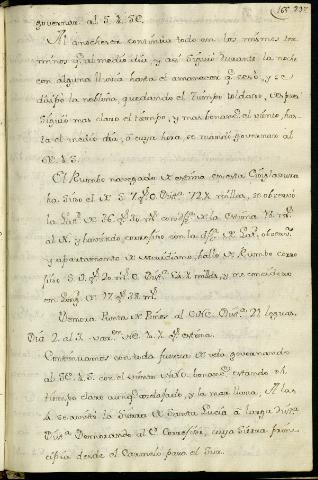 governar al S.¼.SE.
Al anochecer continua todo en los mismos ter-
minos q.e al medio dia, y asi siguio durante la noche
con alguna lluvia hasta el amanecer q.e cesó, y se
disipo la neblina, quedando el tiempo toldado, despues
siguio mas claro el tiempo, y mas bonanc. el viento, has-
ta el medio dia, á cuya hora se mandó governar al
El Rumbo navegado de estima en esta Singladura
ha sido el de S. 7 g.s O. Dist.a 72 ½ millas, se observó
la Lat.d de 36 g.s 30 m.s con dif.a de la estima 18 m.s
al N. y haviendo correxido con la dif.a de Lat. observ.
y apartamento de Meridiano, hallo el Rumbo corre-
xido S. O. g.s 20 m.s O. Dist.a millas, y me considero
en Long. de 17 g.s 38 m.s
Demora Punta de Pinos al Dist.a 22 leguas.
Dia 2. al 3. var.on NE. g.s estima.
Continuamos con toda fuerza de vela governando
al SE.¼.S. con el viento NNO. bonanc. estando el
tiempo claro aunq.e arrafado, y la mar llana, A las
4 se avistó la Sierra de Santa Lucia á larga dist.a
Dist.a Demorando al E. Correxido, cuya Sierra prin-
cipia desde el Carmelo para el Sur.